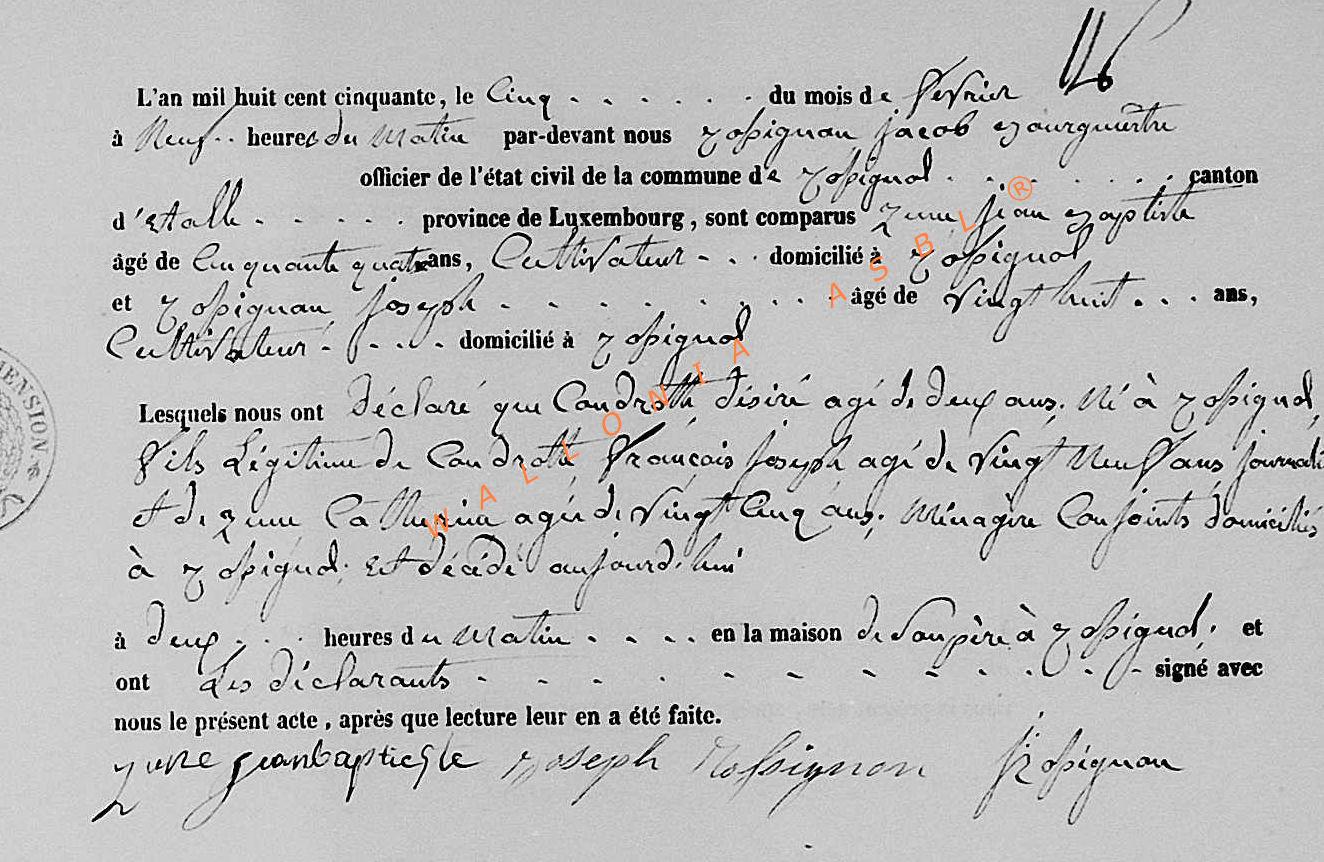 L'an mil huit cent cinquante, le Cinq du mois de février
à Neuf heures du Matin par-devant nous Rossignon Jacob Bourgmestre
officier de l'état civil de la commune de Rossignol canton
d'Etalle province de Luxembourg, sont comparus Zune Jean Baptiste
âgé de Cinquante quatre ans, Cultivateur domicilié à Rossignol
et Rossignon Joseph âgé de Vingt huit ans,
Cultivateur domicilié à Rossignol
Lesquels nous ont Déclaré que Condrotte Désiré agé de deux ans, Né à Rossignol,
fils Légitime de Condrotte François Joseph agé de Vingt Neuf ans journali
et de Zune Catherine agée de Vingt Cinq ans, Ménagère Conjoints domiciliés
à Rossignol, Est décédé aujourd'hui
à deux heures du Matin en la maison de Son père à Rossignol, et
ont Les déclarants signé avec
nous le présent acte, après que lecture leur en a été faite.
Zune jeanbaptieste Joseph Rossignon J Rossignon
WALLONIA ASBL ®
ENSION